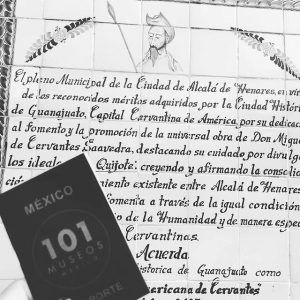 El pleno Municipal de la Ciudad de Alcalá de Henares, en vir
de los reconocidos méritos adquiridos por la Ciudad Históri
de Guanajuato, Capital Cervantina de América, por su dedicac
al fomento y la promoción de la universal obra de Don Migu
de Cervantes Saavedra, destacando su cuidado por divulg
los ideales Quijote: creyendo y afirmando la consolid
ción miento existente entre Alcalá de Henares
omenta a través de la igual condición
o de la Humanidad y de manera espec
Cervantinas.
Acuerda
istorica de Guanajuato como
mericana de Cervantes
MÉXICO
101
MUSEOS
ORTE